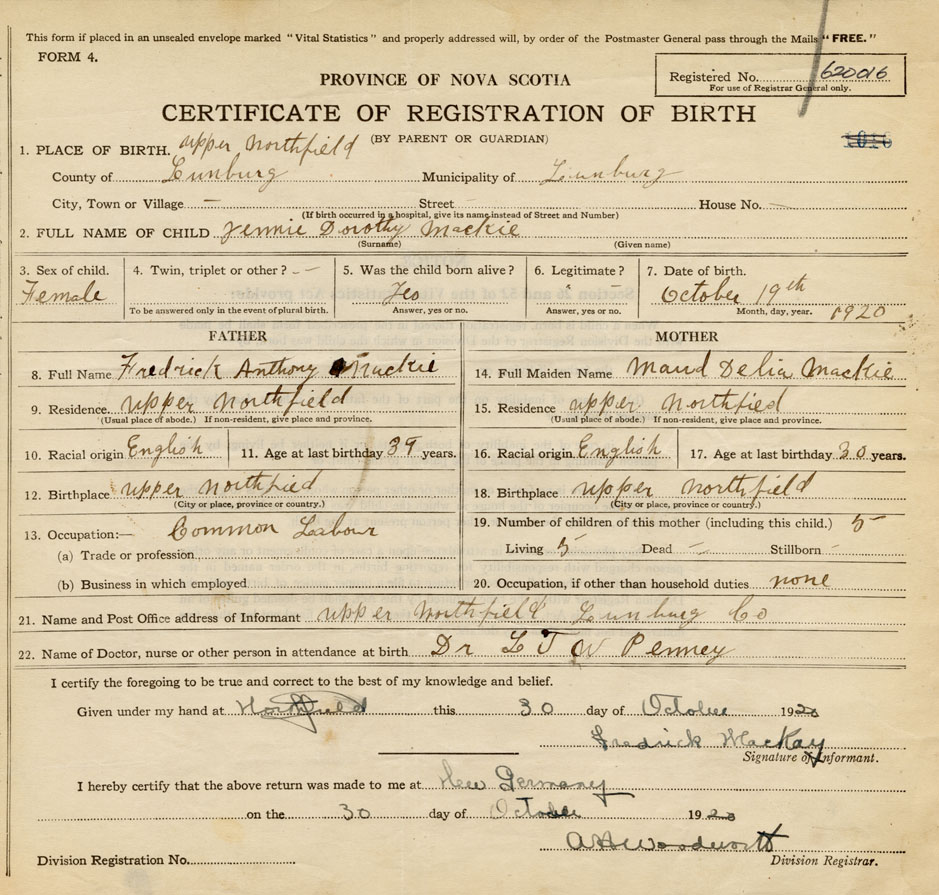 This form if placed in an unsealed envelope marked "Vital Statistics" and properly addressed will, by order of the Postmaster General pass through the Mails "FREE."
FORM 4.
PROVINCE OF NOVA SCOTIA
Registered No. 620016
For use of Registrar General only.
CERTIFICATE OF REGISTRATION OF BIRTH
(BY PARENT OR GUARDIAN)
1. PLACE OF BIRTH. upper Northfield
County of Lunburg Municipality of Lunburg
City, Town or Village — Street — House No. —
(If birth occurred in a hospital, give its name instead of Street and Number)
2. FULL NAME OF CHILD Jennie Dorothy Mackie
(Surname) (Given name)
3. Sex of child. 4. Twin, triplet or other? — 5. Was the child born alive? 6. Legitimate? 7. Date of birth.
Female Yes — October 19th
To be answered only in the event of plural birth. Answer, yes or no. Answer, yes or no. Month, day, year. 1920
FATHER MOTHER
8. Full Name Fredrick Anthony Mackie 14. Full Maiden Name Maud Delia Mackie
9. Residence. upper Northfield 15. Residence upper Northfied
(Usual place of abode.) If non-resident, give place and province. (Usual place of abode.) If non-resident, give place and province.
10. Racial origin English 11. Age at last birthday 39 years. 16. Racial origin English 17. Age at last birthday 30 years.
12. Birthplace upper Northfied 18. Birthplace upper Northfield
(City or place, province or country.) (City or place, province or country.)
13. Occupation:— Common Labour 19. Number of children of this mother (including this child.) 5
(a) Trade or profession Living 5 Dead — Stillborn —
(b) Business in which employed 20. Occupation, if other than household duties none
21. Name and Post Office address of Informant upper Northfield Lunburg Co
22. Name of Doctor, nurse or other person in attendance at birth Dr L T W Penney
I certify the foregoing to be true and correct to the best of my knowledge and belief.
Given under my hand at Northfield this 30 day of October 1920
Fredrick MacKay
Signature of Informant.
I hereby certify that the above return was made to me at New Germany
on the 30 day of October 1920
A H Woodworth
Division Registration No. Division Registrar.